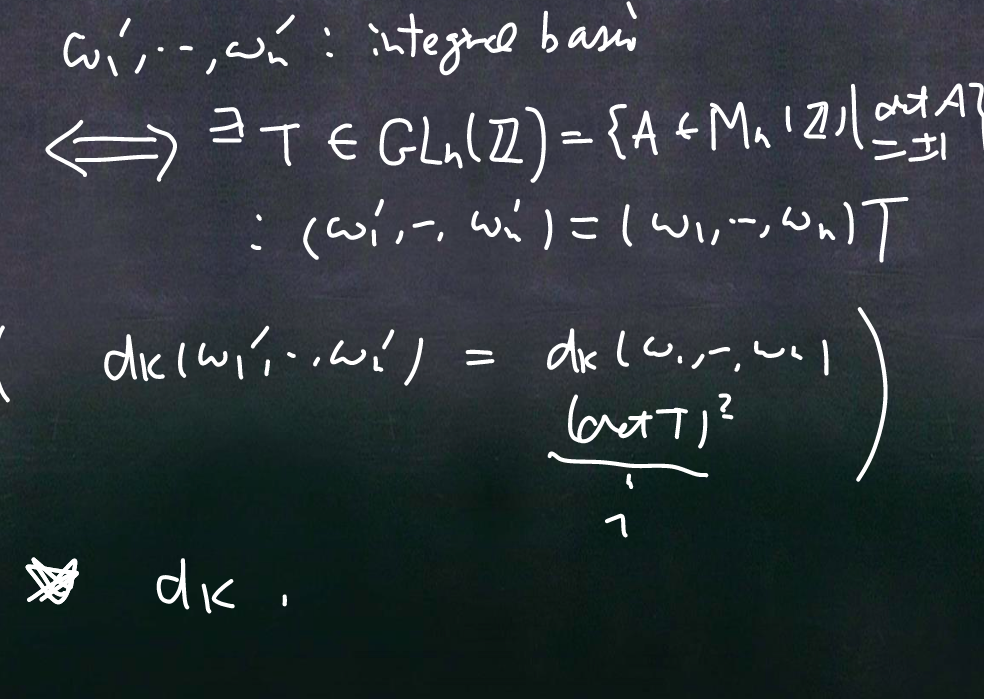 ω₁′, ‥, ωₙ′ : integral basis
⟺ ∃ T ∈ GLₙ(ℤ) = {A ∈ Mₙ(ℤ) | det A = ±1}
: (ω₁′, –, ωₙ′) = (ω₁, ‥, ωₙ) T
( dK(ω₁′, ‥, ωₙ′) = dK(ω₁, –, ωₙ) )
(det T)²
1
dK .